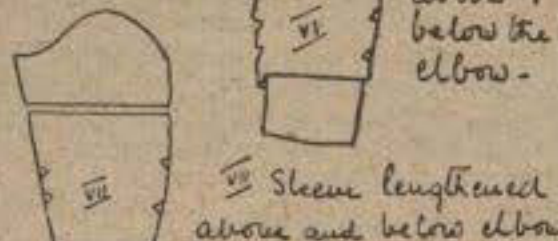 VI
below the
elbow.
VII
VII Sleeve lengthened
above and below elbow